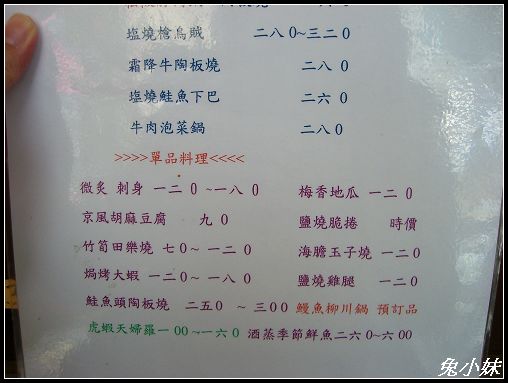 塩燒槍烏賊 二八0~三二0
霜降牛陶板燒 二八0
塩燒鮭魚下巴 二六0
牛肉泡菜鍋 二八0
>>>>單品料理<<<<
微炙 刺身 一二0~一八0 梅香地瓜 一二0
京風胡麻豆腐 九0 鹽燒脆捲 時價
竹筍田樂燒 七0~一二0 海膽玉子燒 一二0
焗烤大蝦 一二0~一八0 鹽燒雞腿 一二0
鮭魚頭陶板燒 二五0 ~三00 鰻魚柳川鍋 預訂品
虎蝦天婦羅一00~一六0 酒蒸季節鮮魚二六0~六00
兔小妹